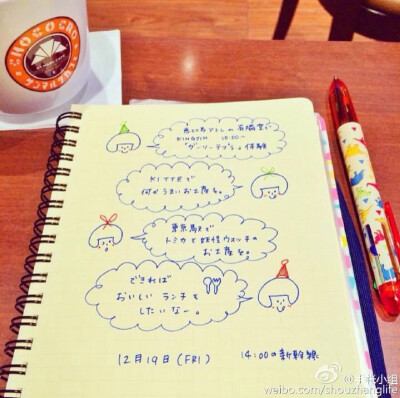 CHOCOCRO
恵比寿アトレの有隣堂で
KINGJIM 10:00〜
"ガーリーテプラ" 体験
KITTEで
何かうまいお土産を。
東京駅で
トミカと妖怪ウォッチの
お土産を。
できれば
おいしい ランチも
したいなー。
12月19日(FRI) 14:00の新幹線
weibo.com/shouzhanglife